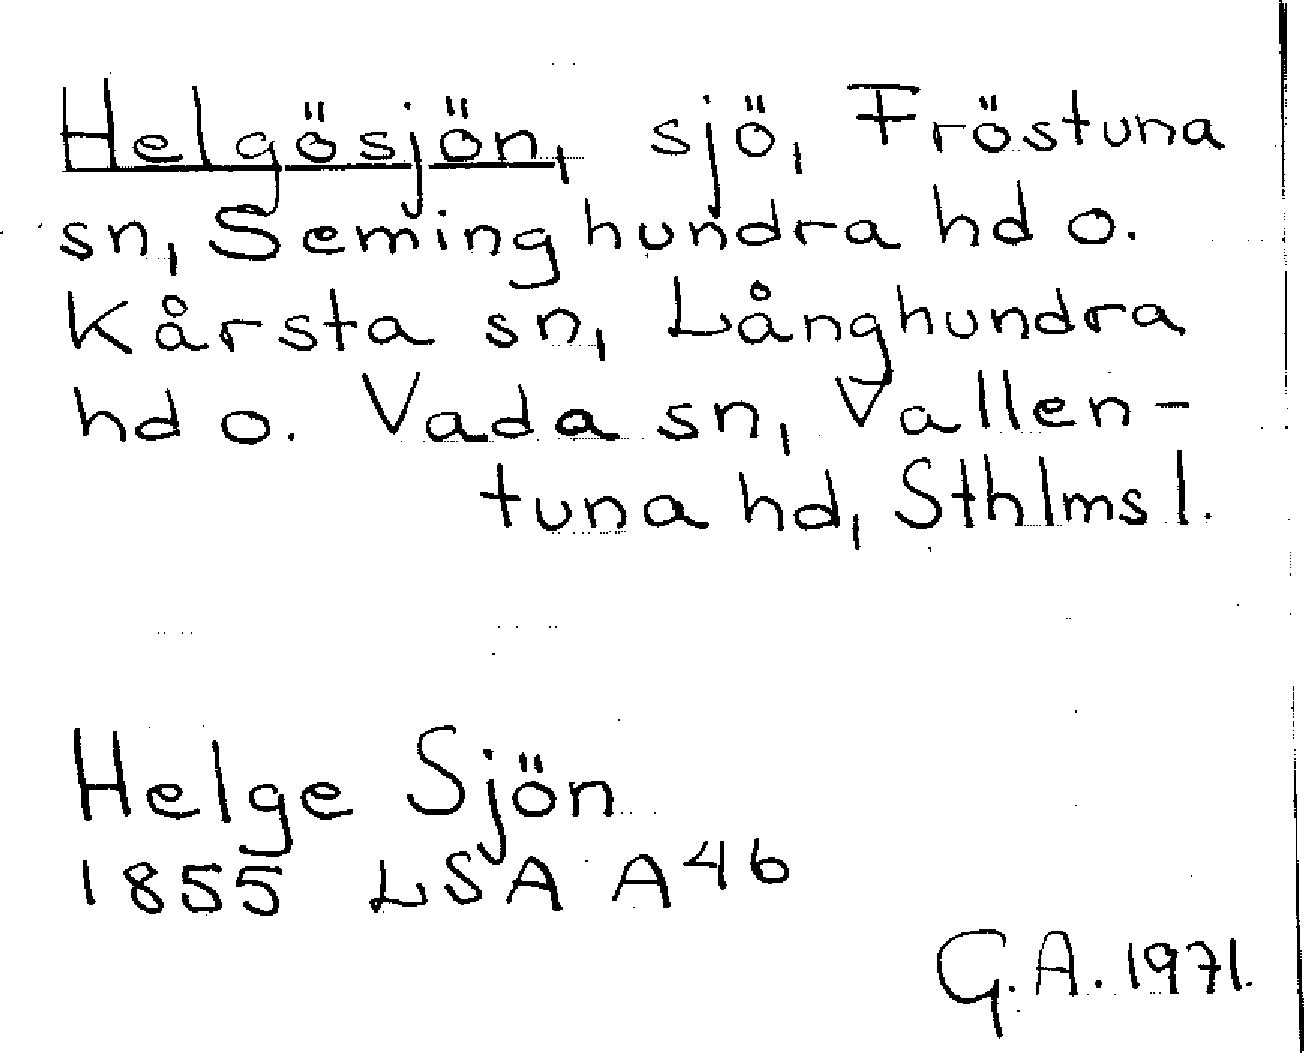 Helgösjön, sjö, Fröstuna
sn, Seminghundra hd o.
Kårsta sn, Långhundra
hd o. Vada sn, Vallen-
tuna hd, Sthlms l.
Helge Sjön
1855 LSA A46
G.A. 1971.